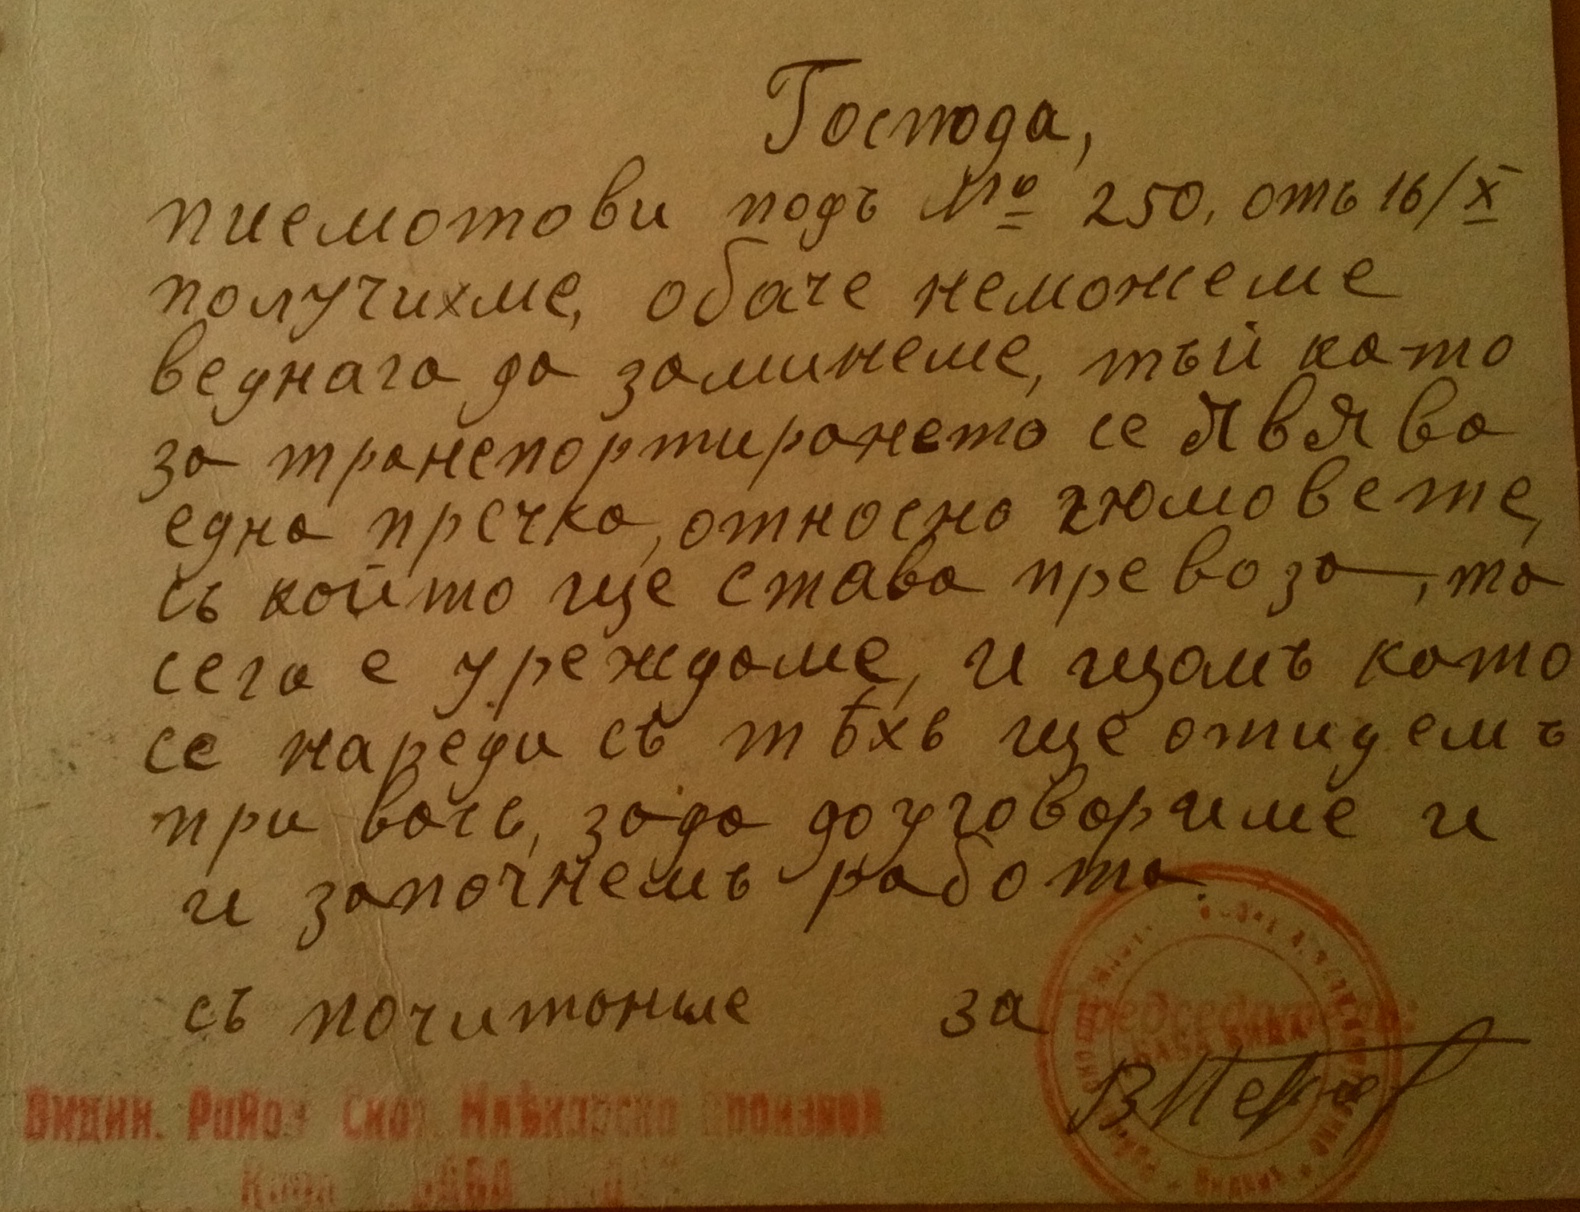 Господа,
писмотови подъ № 250, отъ 16/X
получихме, обаче неможеме
веднага да заминеме, тъй като
за транспортирането се явява
една пречка, относно гюмовете,
съ който ще става превоза, та
сега е уреждаме, и щомъ като
се нареди съ тѣхъ ще отидемъ
при васъ, зада доуговориме и
и започнемъ работа.
съ почитание за Председатель:
Видин. Район Скот. Млѣкарско Произвед